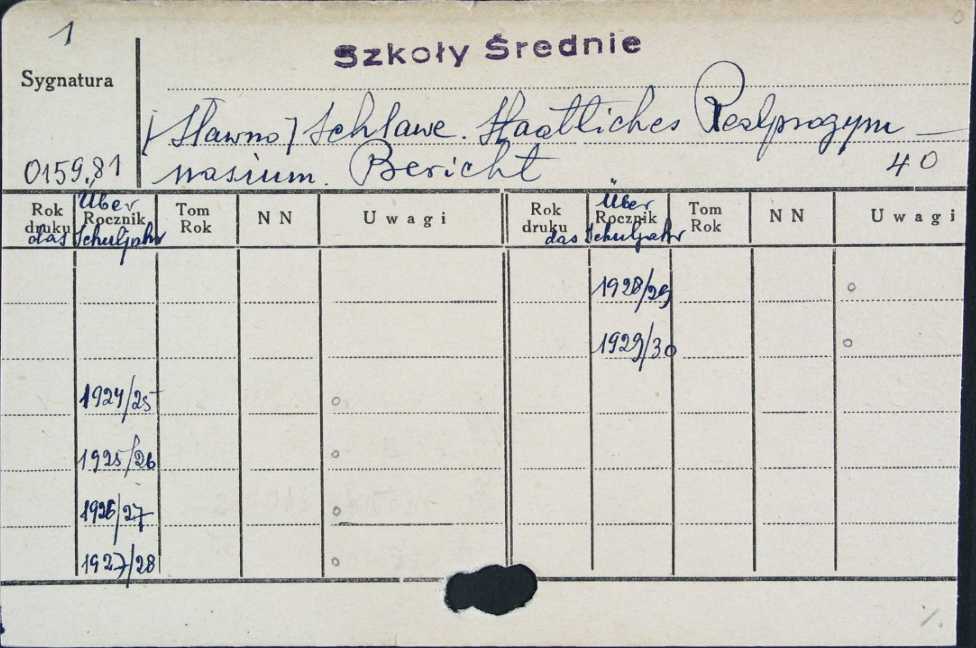 1
Szkoły Średnie
Sygnatura
[Sławno] Schlawe. Staatliches Realprogym-
0159,81 nasium. Bericht 40
Rok druku Über Rocznik Tom Rok NN Uwagi Rok druku Über Rocznik Tom Rok NN Uwagi
das Schuljahr das Schuljahr
1928/29 o
1929/30 o
1924/25 o
1925/26 o
1926/27 o
1927/28 o